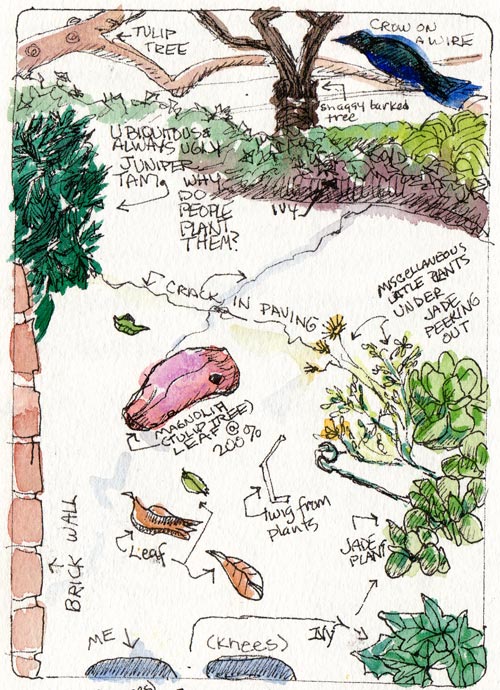 TULIP
TREE
CROW ON
A WIRE
shaggy barked
tree
UBIQUITOUS &
ALWAYS UGLY
JUNIPER
TAM.
WHY
DO
PEOPLE
PLANT
THEM?
IVY
CRACK IN PAVING
MISCELLANEOUS
LITTLE PLANTS
UNDER
JADE
PEEKING
OUT
MAGNOLIA
(TULIP TREE)
LEAF @
200%
Twig from
plants
Leaf
JADE
PLANT
BRICK WALL
ME
(Knees)
IVY